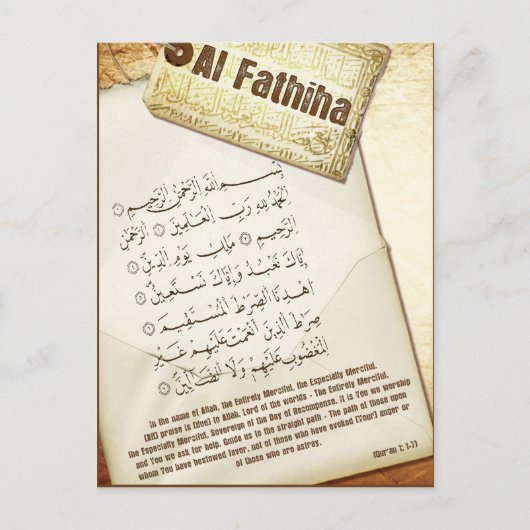 Al Fathiha
بِسْمِ اللَّهِ الرَّحْمَٰنِ الرَّحِيمِ ١
الْحَمْدُ لِلَّهِ رَبِّ الْعَالَمِينَ ٢ الرَّحْمَٰنِ
الرَّحِيمِ ٣ مَالِكِ يَوْمِ الدِّينِ ٤
إِيَّاكَ نَعْبُدُ وَإِيَّاكَ نَسْتَعِينُ ٥
اهْدِنَا الصِّرَاطَ الْمُسْتَقِيمَ ٦
صِرَاطَ الَّذِينَ أَنْعَمْتَ عَلَيْهِمْ غَيْرِ
الْمَغْضُوبِ عَلَيْهِمْ وَلَا الضَّالِّينَ ٧
In the name of Allah, the Entirely Merciful, the Especially Merciful.
[All] praise is [due] to Allah, Lord of the worlds - The Entirely Merciful,
the Especially Merciful, Sovereign of the Day of Recompense. It is You we worship
and You we ask for help. Guide us to the straight path - The path of those upon
whom You have bestowed favor, not of those who have evoked [Your] anger or
of those who are astray.
(Qur'an 1: 1-7)